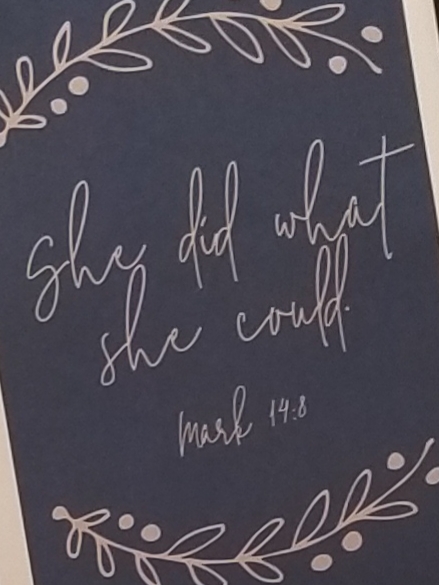 She did what
she could.
Mark 14:8